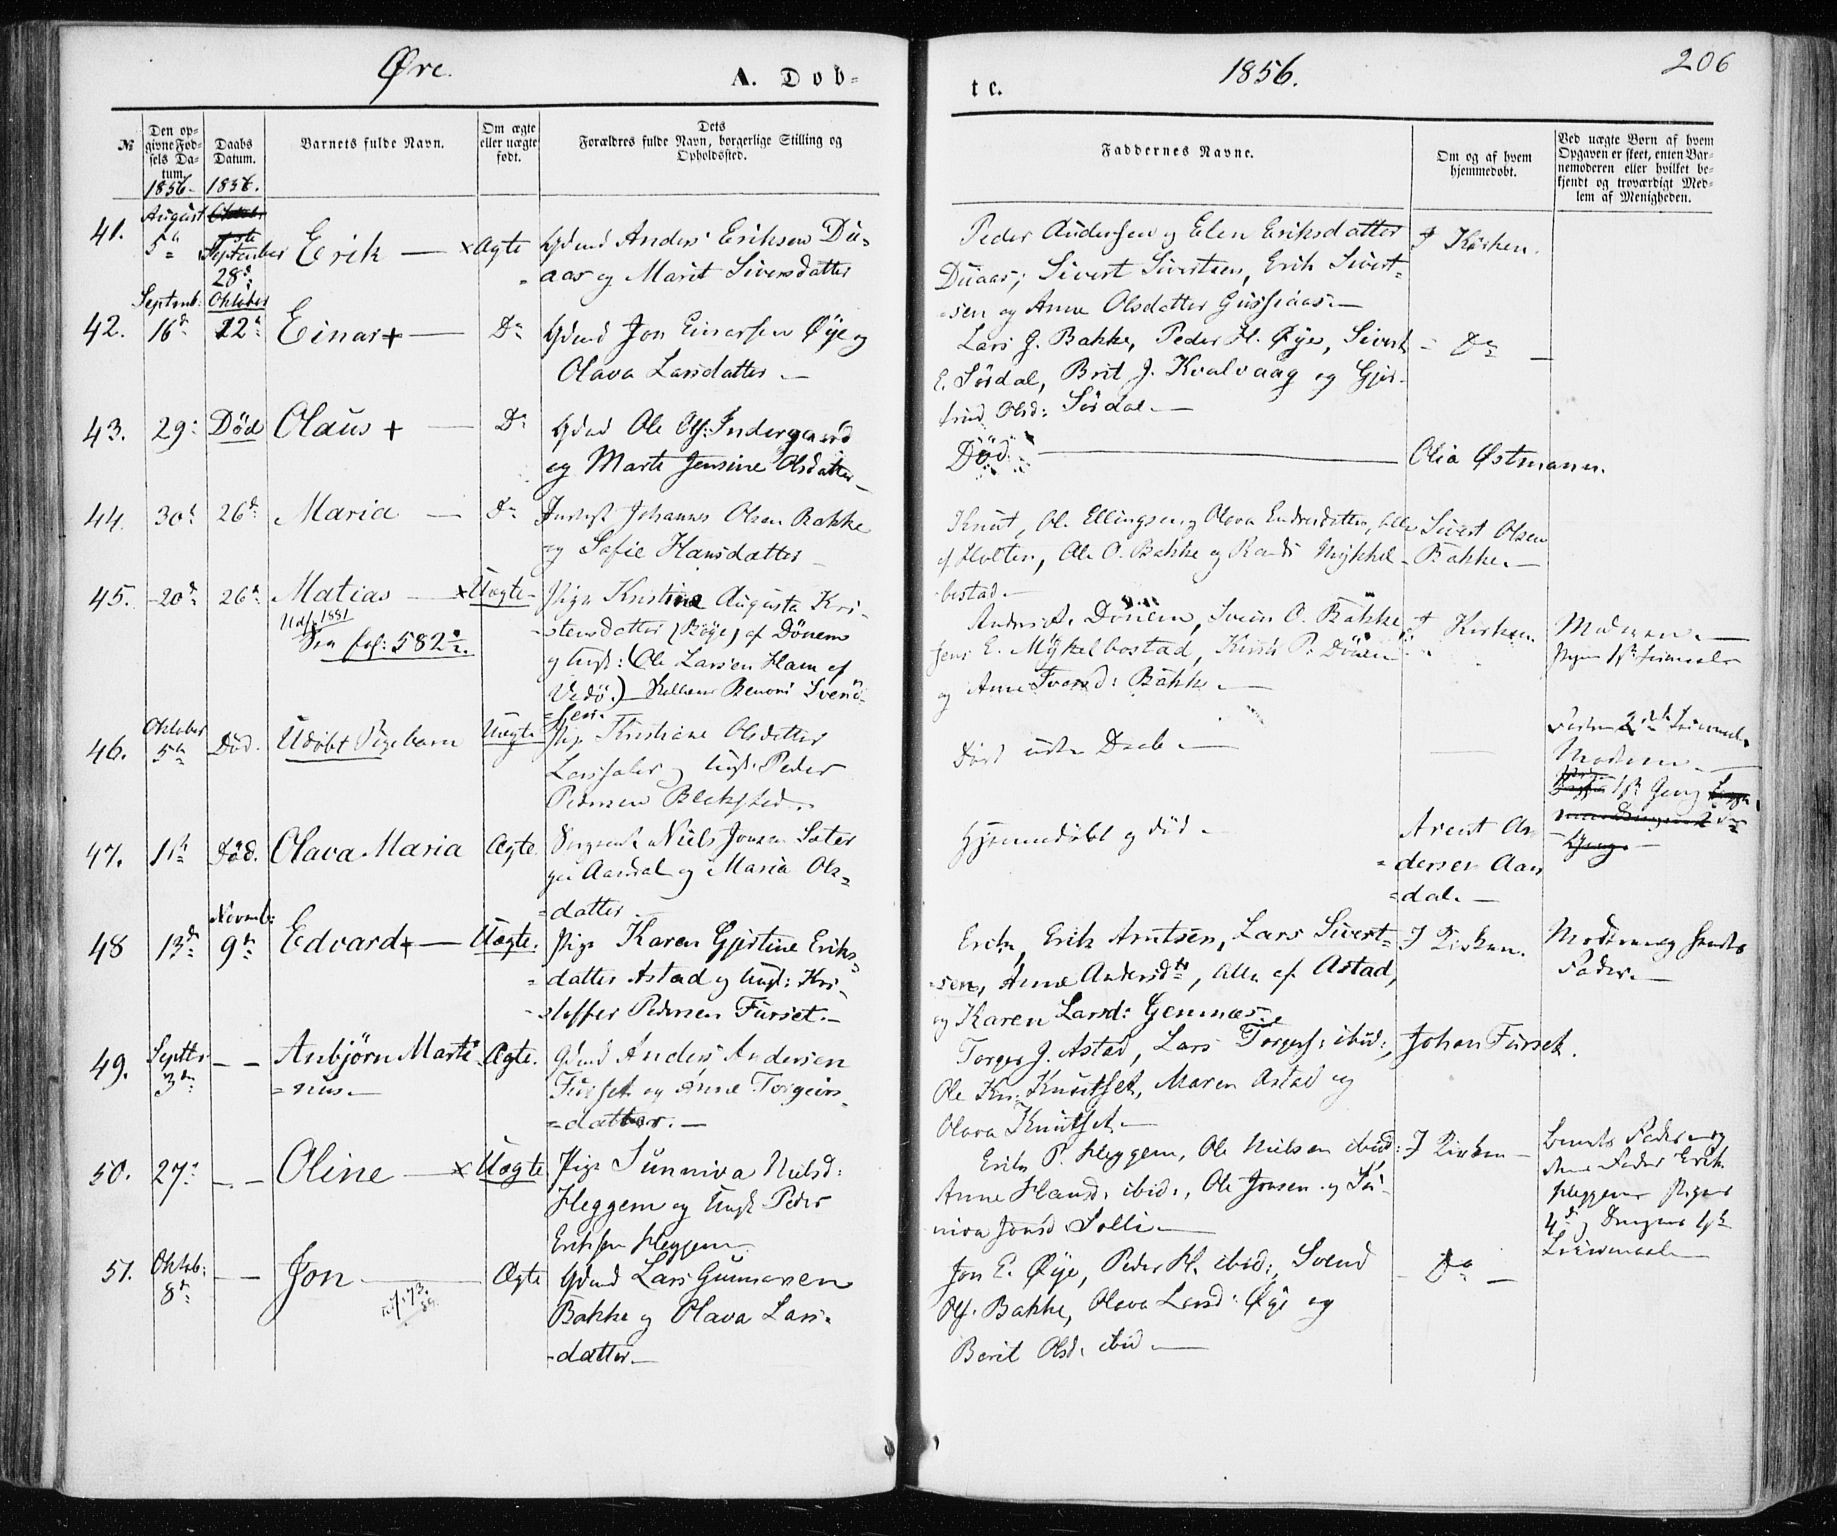 Øre.
A. Dob-
te.
1856.
206
№
Den op-
givne Fød-
sels Da-
tum.
1856.
Daabs
Datum.
1856.
Barnets fulde Navn.
Om ægte
eller uægte
født.
Dets
Forældres fulde Navn, borgerlige Stilling og
Opholdssted.
Faddernes Navne.
Om og af hvem
hjemmedøbt.
Ved uægte Børn af hvem
Opgaven er skeet, enten Bar-
nemoderen eller hvilket be-
kjendt og troværdigt Med-
lem af Menigheden.
41.
August
5te
September
28de
Erik
Ægte
Gdmd Anders Eriksen Du-
aas og Marit Siversdatter
Peder Andersen og Elen Eriksdatter
Duaas; Sivert Sivertsen, Erik Sivert-
sen og Anne Olsdatter Gussiaas.
I Kirken.
42.
Septemb:
16de
Oktober
12te
Einar +
Do
Gdmd Jon Einarsen Øye og
Olava Larsdatter
Lars J. Bakke, Peder H. Øye, Sivert
E. Sørdal, Brit J. Kvalvaag og Gjer-
trud Olsd: Sørdal.
Do
43.
29:
Død
Olaus +
Do
Gdmd Ole Ols: Indergaard
og Marte Jensine Olsdatter
Død
Olia Østmann.
44.
30te
26de
Maria
Do
Johannes Olsen Bakke
og Sofie Hansdatter
Knut, Ol. Ellingsen, Olava Endresdatter, alle
af Holten, Ole O. Bakke og Mykkel-
bostad
Sivert Olsen
Bakke.
45.
20de
26de
Matias
Udf. 1881
Sen fol: 582½.
x Uægte
Pige Kristine Augusta Kri-
stensdatter (Bøye) af Dönem
og Ungk: (Ole Larsen Ham af
Vedö.) Benoni Svend-
sen.
Anders A. Dönem, Svein O. Bakke
Jens E. Mykelbostad, Kirsti P. Dönem
og Anne Iversd: Bakke.
I Kirken.
Moderen.
Pigens 1ste Leiermaal
46.
Oktober
5te
Død.
Udøbt Pigebarn
Uægte
Pige Kristiane Olsdatter
og Ungk: Peder
Pedersen Blekstad.
Død uden Daab.
2det Leiermaal
Moderen
1ste Gang
47.
11te
Død.
Olava Maria
Ægte.
Niels Jonsen Sæter
Aandal og Maria Ols-
datter
Hjemmedøbt og død.
Arent An-
dersen Aan
dal.
48
13de
Novemb:
9de
Edvard +
Uægte.
Pige Karen Gjertine Eriks-
datter Astad og Ungk: Kri-
stoffer Pedersen Furset.
Erik, Erik Arntsen, Lars Sivert-
sen, Anne Andersdtr, alle af Astad,
og Karen Larsd: Gemnæs.
I Kirken.
Moderen og
Fader.
49.
Septbr
3de
Anbjørn Marti
nus.
Ægte.
Gdmd Anders Andersen
Furset og Anne Torgeirs-
datter.
Torger J. Astad, Lars Torgers: ibid:,
Ole Kn: Knutset, Maren Astad og
Olava Knutset.
Johan Furset.
50.
27:
Oline
x Uægte
Pige Sunniva Nielsd:
Heggem og Ungk Peder
Eriksen Heggem.
Erik P. Heggem, Ole Nielsen ibid:
Anne Hansd: ibid:, Ole Jonsen og Su-
niva Jonsd Solli.
I Kirken
Barnets Fader og
Fader Erik
Heggem Pigens
4de og Drengens 1ste
Leiermaal
51.
Oktob:
8de
Jon
Ægte
Gdmd Lars Gunnersen
Bakke og Olava Lars-
datter
Jon E. Øye, Peder H. ibid:, Svend
Ols. Bakke, Olava Larsd: Øye og
Berit Olsd: ibid
Do